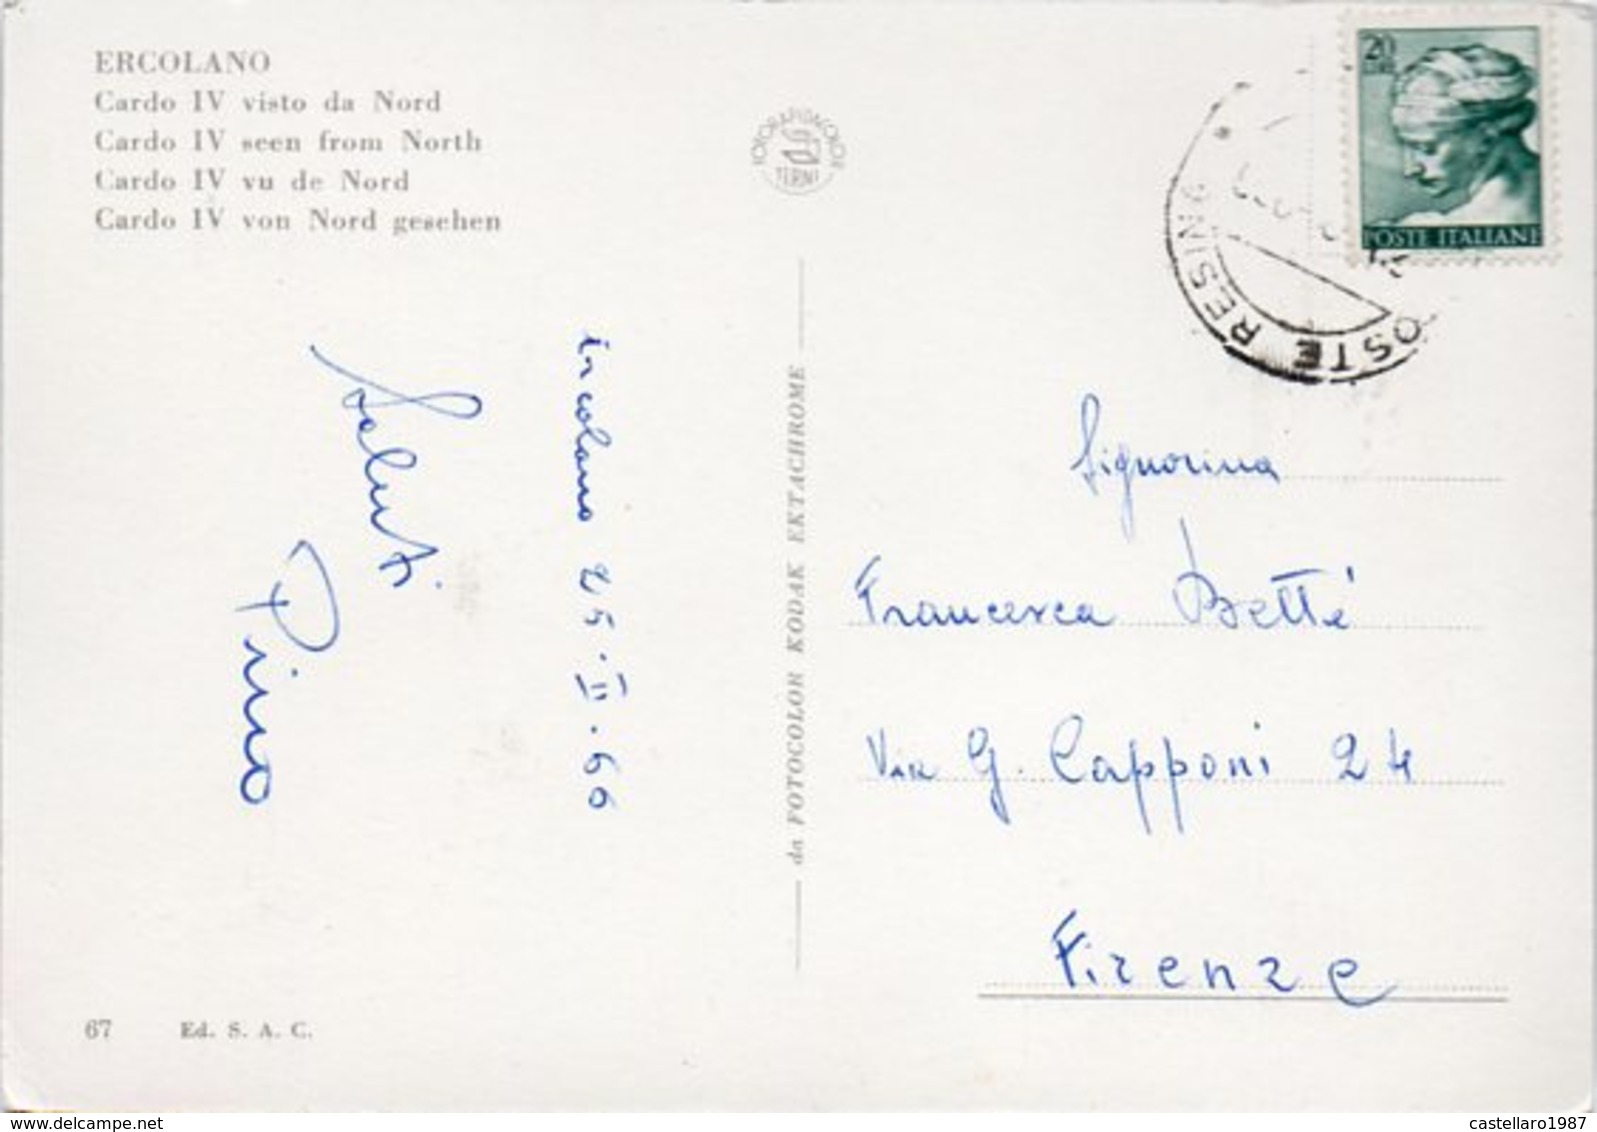 ERCOLANO
Cardo IV visto da Nord
Cardo IV seen from North
Cardo IV vu de Nord
Cardo IV von Nord gesehen
FOTORAPIDACOLOR
TERNI
20
POSTE ITALIANE
OSTE RESINE
Ercolano 25.II.66
Saluti
Pino
da FOTOCOLOR KODAK EKTACHROME
Signorina
Francesca Betté
Via G. Capponi 24
Firenze
67 Ed. S. A. C.
delcampe.net
castellaro1987